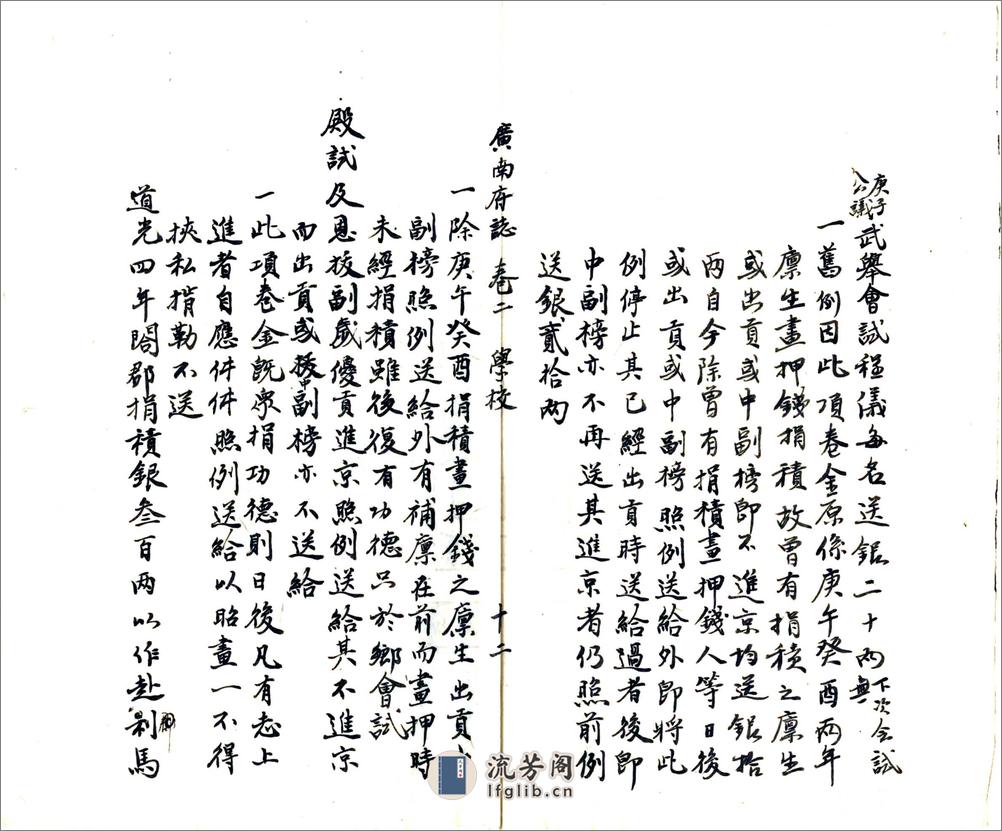 庚子公議武舉會試程儀每名送銀二十兩下次會試無
一舊例因此項卷金原係庚午癸酉兩年
廪生畫押錢捐積故曾有捐積之廪生
或出貢或中副榜即不進京均送銀拾
兩自今除曾有捐積畫押錢人等日後
或出貢或中副榜照例送給外即將此
例停止其已經出貢時送給過者後即
中副榜亦不再送其進京者仍照前例
送銀貳拾兩
廣南府誌 卷二 學校 十二
一除庚午癸酉捐積畫押錢之廪生出貢中
副榜照例送給外有補廪在前而畫押時
未經捐積雖後復有功德只於鄉會試
殿試及恩拔副歲優貢進京照例送給其不進京
而出貢或中副榜亦不送給
一此項卷金既衆捐功德則日後凡有志上
進者自應件件照例送給以昭畫一不得
挾私揹勒不送
道光四年閤郡捐積銀叁百兩以作赴剝馬
流芳阁
lfglib.cn